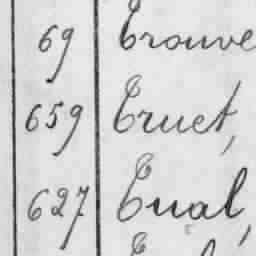 69 Trouve
659 Truet,
627 Tual,